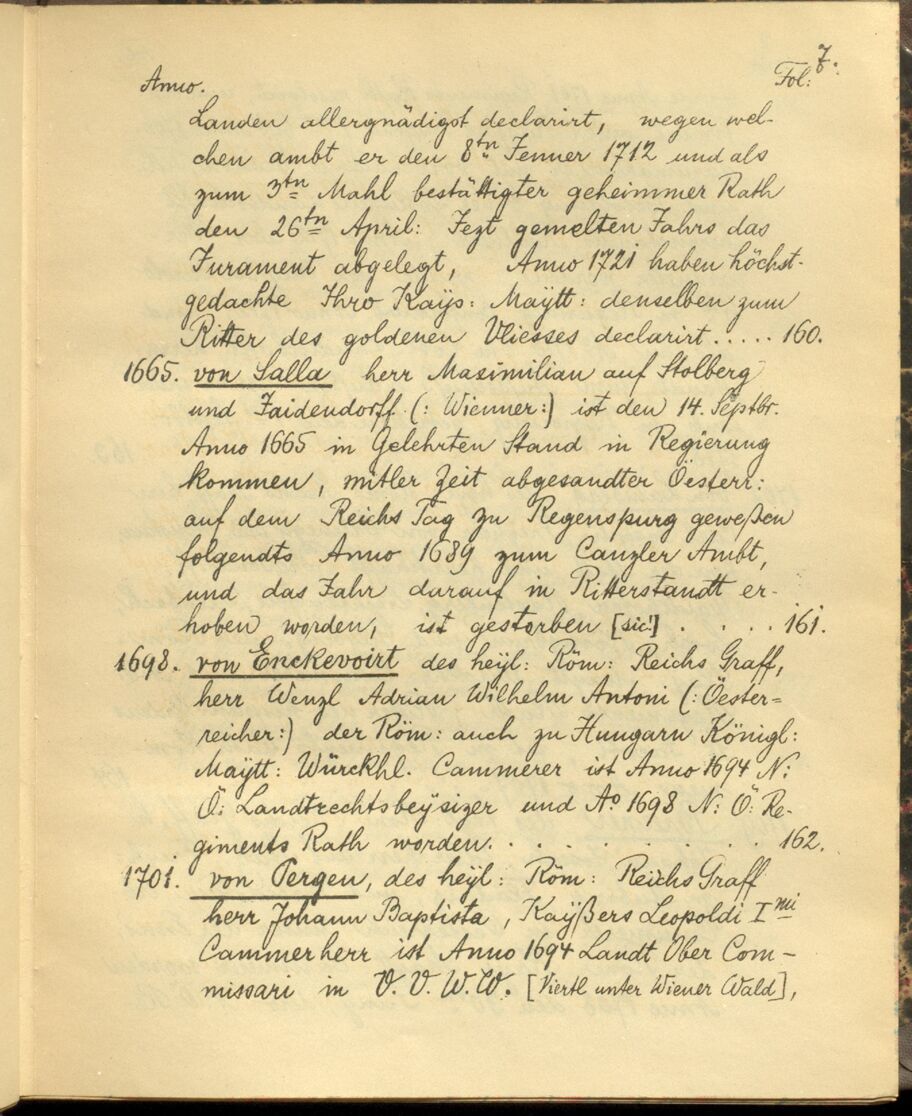 7.
Anno. Fol:
Landen allergnädigst declarirt, wegen wel-
chen ambt er den 8tn Jenner 1712 und als
zum 3tn Mahl bestättigter geheimmer Rath
den 26tn April: Jezt gemelten Jahrs das
Jurament abgelegt, Anno 1721 haben höchst-
gedachte Ihro Kaÿs: Maÿtt: denselben zum
Ritter des goldenen Vliesses declarirt ..... 160.
1665. von Salla herr Maximilian auf Stolberg
und Jaidendorff (: Wienner:) ist den 14. Septbr.
Anno 1665 in Gelehrten Stand in Regierung
kommen, mitler Zeit abgesandter Öesterr:
auf dem Reichs Tag zu Regenspurg geweßen
folgendts Anno 1689 zum Canzler Ambt,
und das Jahr darauf in Ritterstandt er-
hoben worden, ist gestorben [sic!] . . . . 161.
1698. von Enckevoirt des heÿl: Röm: Reichs Graff,
herr Wenzl Adrian Wilhelm Antoni (: Öester=
reicher:) der Röm: auch zu Hungarn Königl:
Maÿtt: Würckhl. Cammerer ist Anno 1694 N:
Ö: Landtrechtsbeÿsizer und Ao 1698 N: Ö: Re-
giments Rath worden. . . . . . . . . 162.
1701. von Pergen, des heÿl: Röm: Reichs Graff
herr Johann Baptista, Kaÿßers Leopoldi Imi
Cammerherr ist Anno 1694 Landt Ober Com-
missari in V. V. W. W. [Viertl unter Wiener Wald],